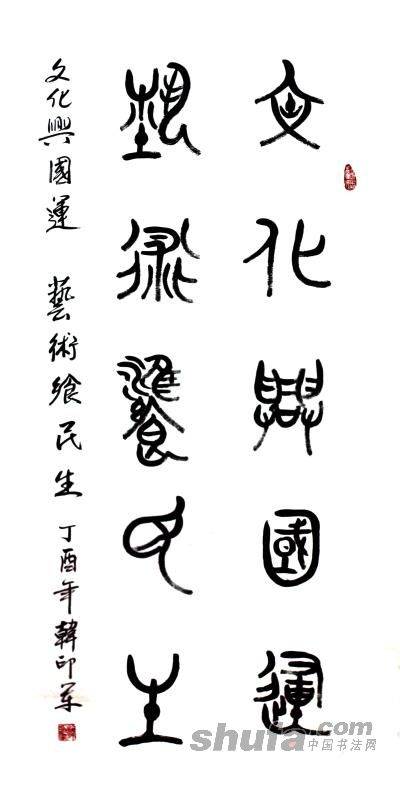 文化興國運
藝術飨民生
文化興國運 藝術飨民生 丁酉年韓印军
shufa.com
中国书法网